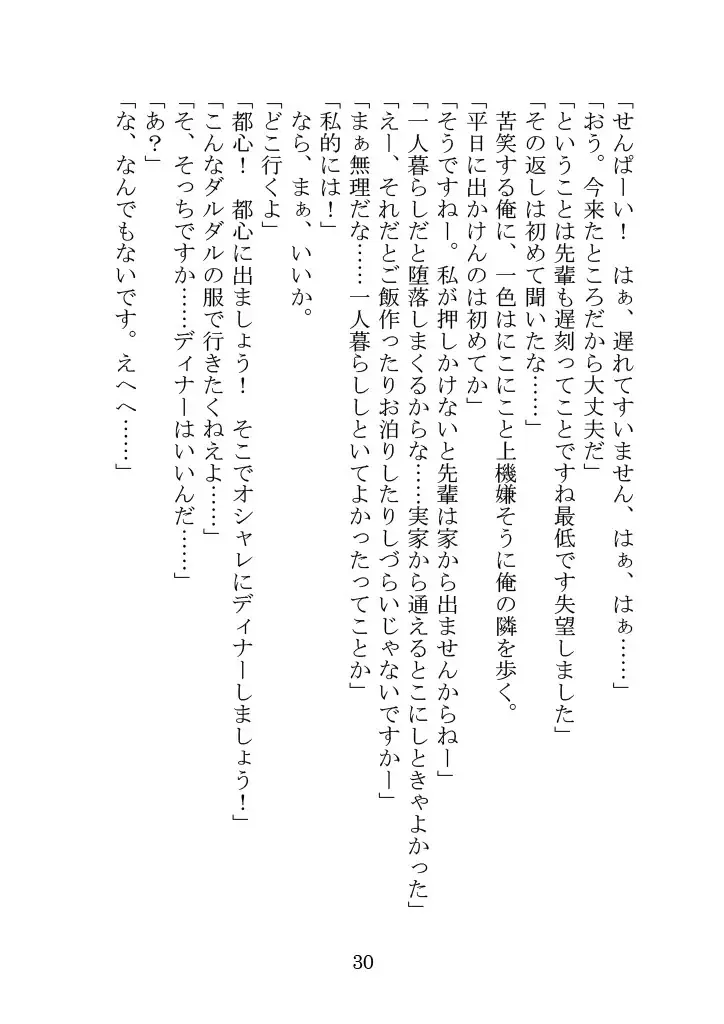 「せんぱーい！　はぁ、遅れてすいません、はぁ、はぁ……」
「おう。今来たところだから大丈夫だ」
「ということは先輩も遅刻ってことですね最低です失望しました」
「その返しは初めて聞いたな……」
　苦笑する俺に、一色はにこにこと上機嫌そうに俺の隣を歩く。
「平日に出かけんのは初めてか」
「そうですねー。私が押しかけないと先輩は家から出ませんからねー」
「一人暮らしだと堕落しまくるからな……実家から通えるとこにしときゃよかった」
「えー、それだとご飯作ったりお泊りしたりしづらいじゃないですかー」
「まぁ無理だな……一人暮らししといてよかったってことか」
「私的には！」
　なら、まぁ、いいか。
「どこ行くよ」
「都心！　都心に出ましょう！　そこでオシャレにディナーしましょう！」
「こんなダルダルの服で行きたくねえよ……」
「そ、そっちですか……ディナーはいいんだ……」
「あ？」
「な、なんでもないです。えへへ……」
30